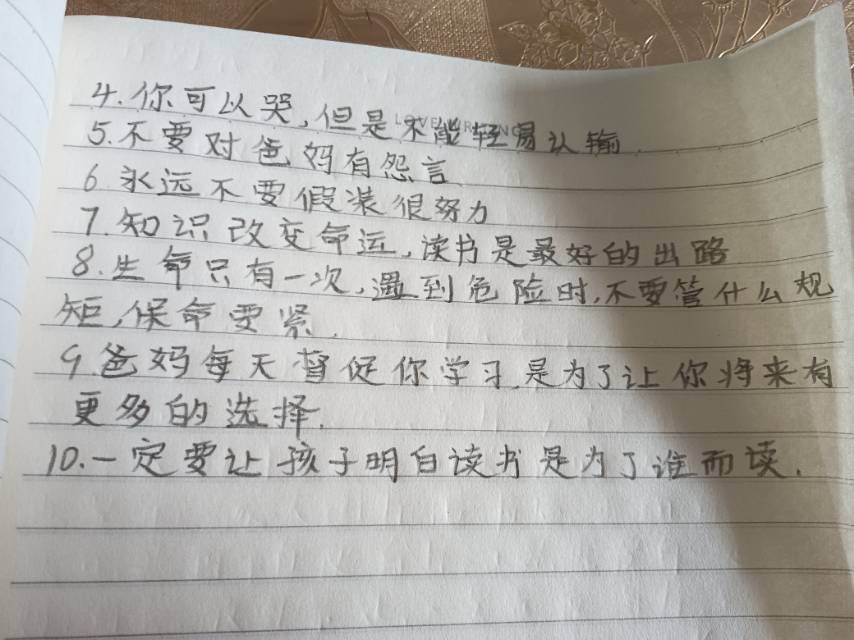 4.你可以哭,但是不能轻易认输.
5.不要对爸妈有怨言
6.永远不要假装很努力
7.知识改变命运,读书是最好的出路
8.生命只有一次,遇到危险时,不要管什么规
矩,保命要紧.
9爸妈每天督促你学习,是为了让你将来有
更多的选择.
10.一定要让孩子明白读书是为了谁而读.